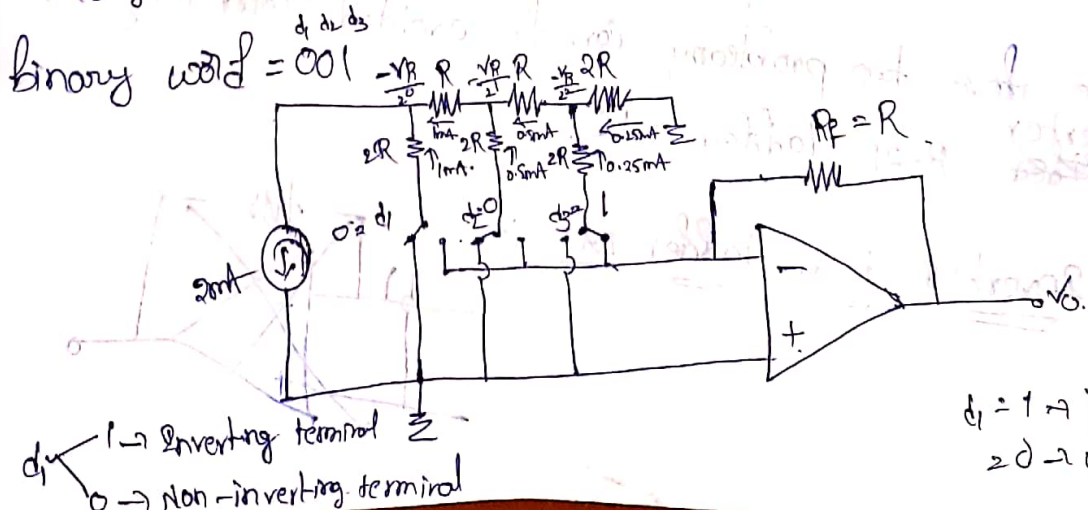 d1 d2 d3
binary word = 001
-VR/2^0 R -VR/2^1 R -VR/2^2 2R
1mA 0.5mA 0.25mA
RF = R
2R ↑1mA. 2R ↑0.5mA 2R ↑0.25mA
0= d1 d2=0 d3= 1
2mA
−
+
Vo.
d1 1 → Inverting terminal
0 → Non-inverting terminal
d1 = 1 →
= 0 →